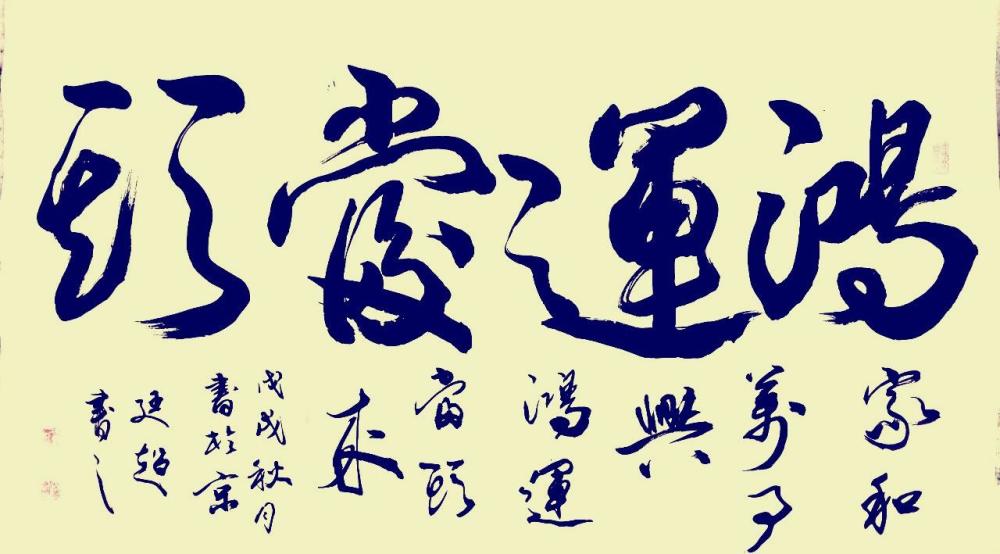 鴻運當頭
家和
萬事
興
鴻運
當頭
來
戊戌秋月
書於京
廷超
書之